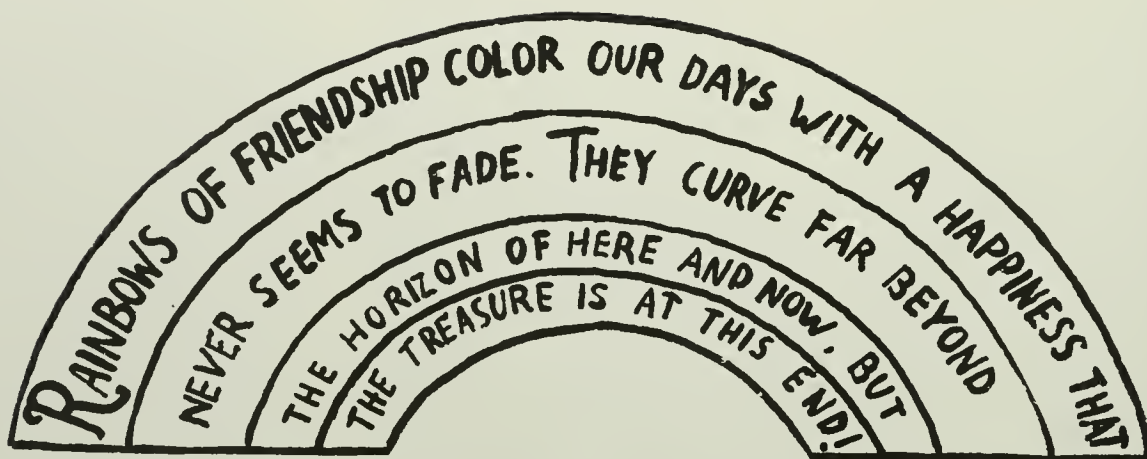 RAINBOWS OF FRIENDSHIP COLOR OUR DAYS WITH A HAPPINESS THAT
NEVER SEEMS TO FADE. THEY CURVE FAR BEYOND
THE HORIZON OF HERE AND NOW, BUT
THE TREASURE IS AT THIS END!